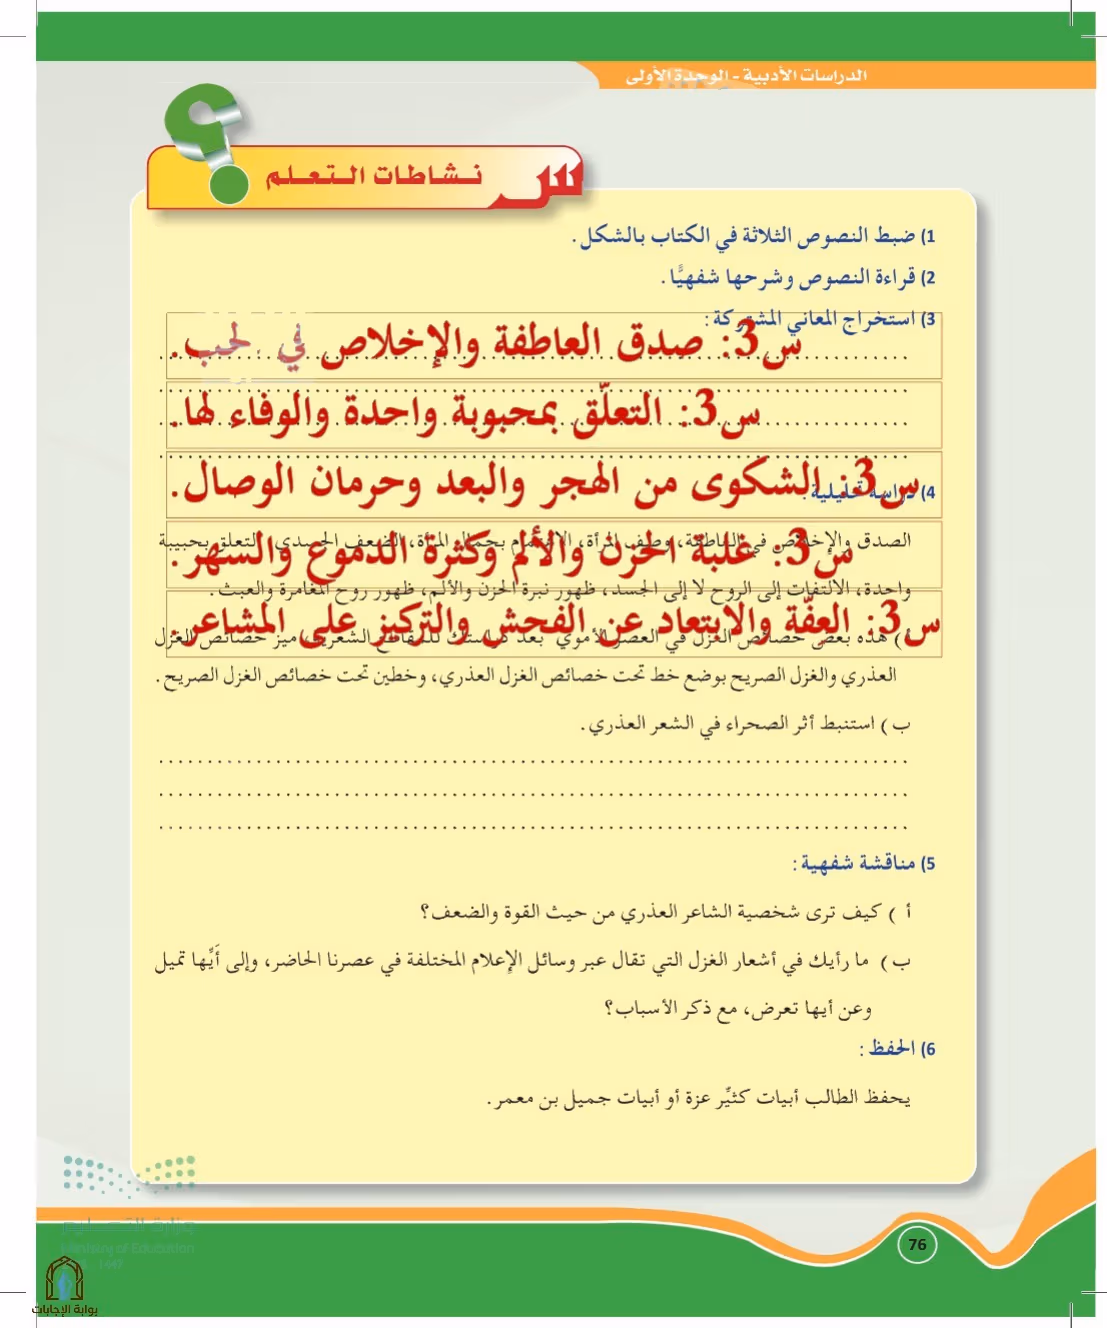 الدراسات الأدبية - الوحدة الأولى
نشاطات التعلم
1) ضبط النصوص الثلاثة في الكتاب بالشكل.
2) قراءة النصوص وشرحها شفهيًّا.
3) استخراج المعاني المشتركة:
س3: صدق العاطفة والإخلاص في لحب.
س3: التعلّق بمحبوبة واحدة والوفاء لها.
س3: الشكوى من الهجر والبعد وحرمان الوصال.
4) دراسة تحليلية:
س3: غلبة الحزن والألم وكثرة الدموع والسهر.
الصدق والإخلاص في العاطفة، وصف المرأة، الاهتمام بجمال المرأة، الضعف الجسدي، التعلق بحبيبة
واحدة، الالتفات إلى الروح لا إلى الجسد، ظهور نبرة الحزن والألم، ظهور روح المغامرة والعبث.
س3: العفّة والابتعاد عن الفحش والتركيز على المشاعر.
أ ) هذه بعض خصائص الغزل في العصر الأموي بعد دراستك للمقاطع الشعرية، ميز خصائص الغزل
العذري والغزل الصريح بوضع خط تحت خصائص الغزل العذري، وخطين تحت خصائص الغزل الصريح.
ب ) استنبط أثر الصحراء في الشعر العذري.
5) مناقشة شفهية:
أ ) كيف ترى شخصية الشاعر العذري من حيث القوة والضعف؟
ب ) ما رأيك في أشعار الغزل التي تقال عبر وسائل الإعلام المختلفة في عصرنا الحاضر، وإلى أَيِّها تميل
وعن أيها تعرض، مع ذكر الأسباب؟
6) الحفظ:
يحفظ الطالب أبيات كثيِّر عزة أو أبيات جميل بن معمر.
وزارة التعليم
Ministry of Education
1447
76
بوابة الإجابات